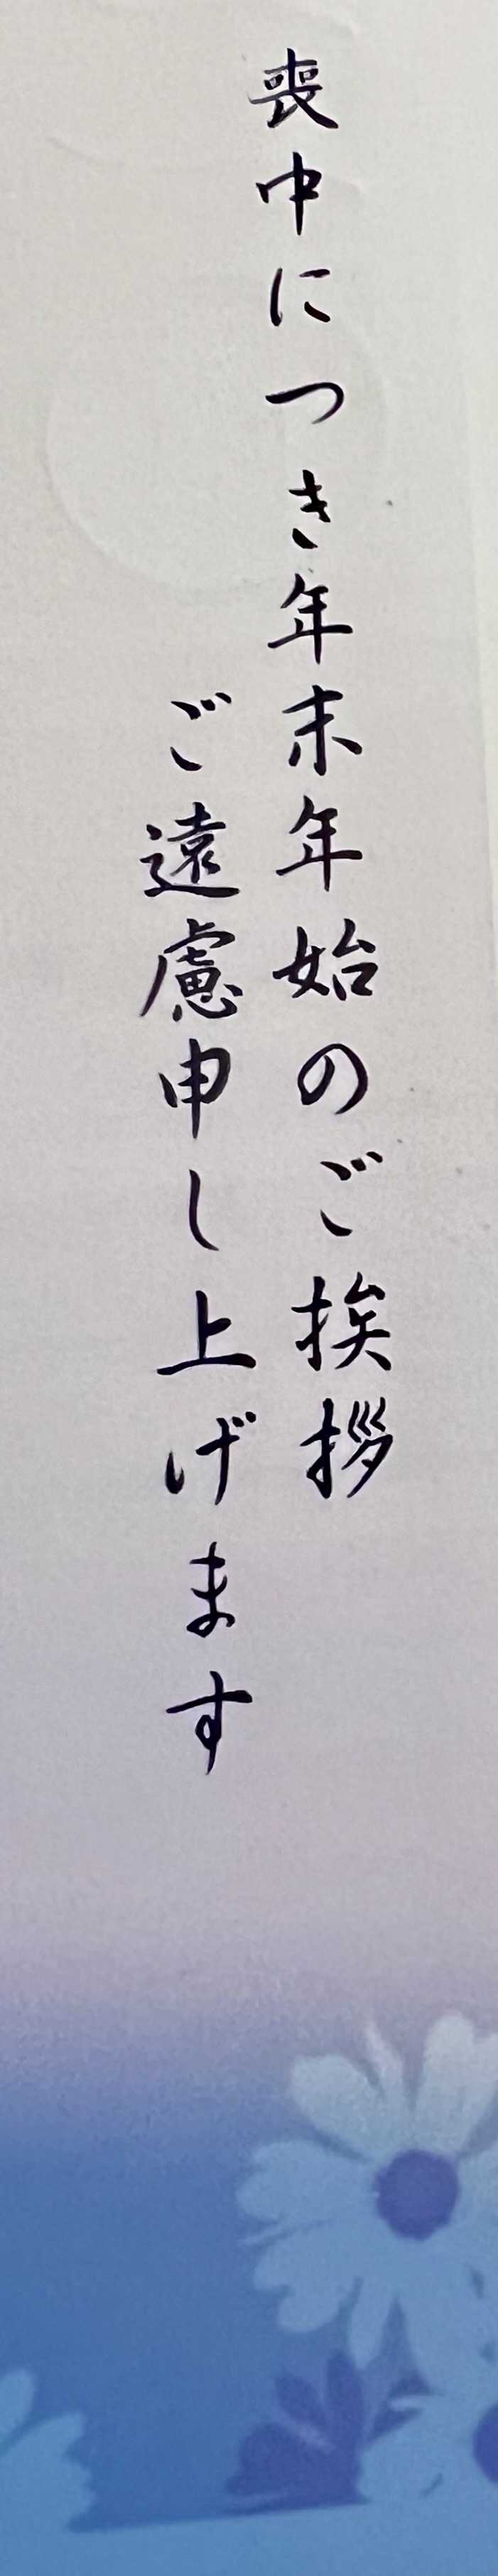 喪中につき年末年始のご挨拶
ご遠慮申し上げます